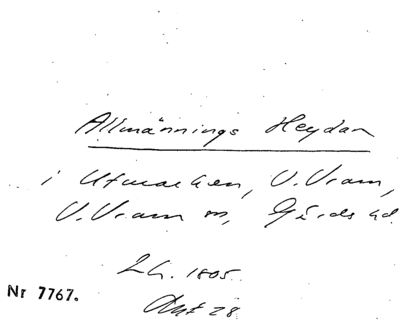 Allmännings Heydan
i Utmarken, V. Vram,
V. Vram sn, Gärds hd.
L. 1805.
Nr 7767.
Akt 28